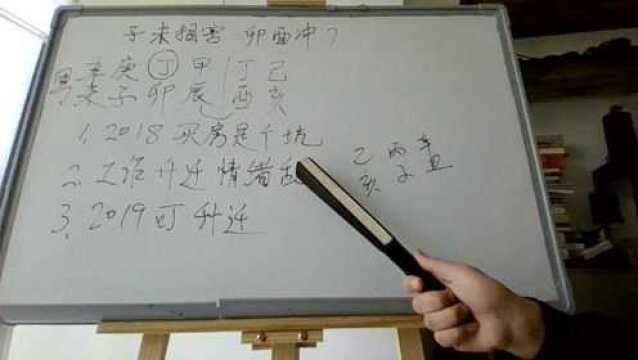 子未相害 卯酉冲?
男 辛庚丁甲 丁己
未子卯辰 酉亥
1、2018 买房是个坑
2、工作升迁 情绪
3、2019 可升迁
乙 丙 辛
亥 子 丑